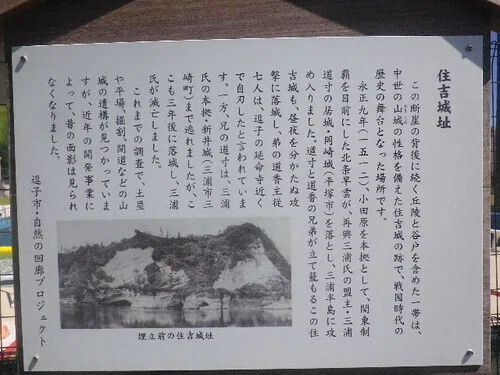 住吉城址
この断崖の背後に続く丘陵と谷戸を含めた一帯は、
中世の山城の性格を備えた住吉城の跡で、戦国時代の
歴史の舞台となった場所です。
永正九年(一五一二)、小田原を本拠として、関東制
覇を目前にした北条早雲が、再興三浦氏の盟主・三浦
道寸の居城・岡崎城(平塚市)を落とし、三浦半島に攻
め入りました。道寸と道香の兄弟が立て籠もるこの住
吉城も、昼夜を分かたぬ攻
撃に落城し、弟の道香主従
七人は、逗子の延命寺近く
で自刃したと言われていま
す。一方、兄の道寸は、三浦
氏の本拠・新井城(三浦市三
崎町)まで逃れましたが、こ
こも三年後に落城し、三浦
氏が滅亡しました。
これまでの調査で、土塁
や平場、掘割、間道などの山
城の遺構が見つかっていま
すが、近年の開発事業に
よって、昔の面影は見られ
なくなりました。
逗子市・自然の回廊プロジェクト
埋立前の住吉城址